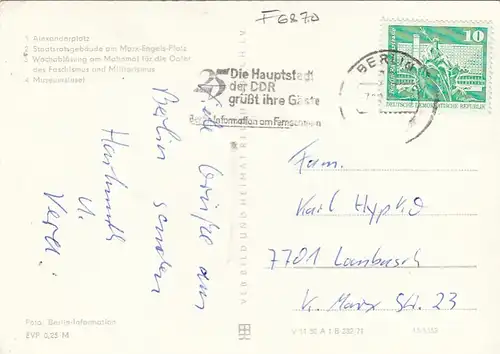 F6870
1 Alexanderplatz
2 Staatsratsgebäude am Marx-Engels-Platz
3 Wachablösung am Mahnmal für die Opfer
des Faschismus und Militarismus
4 Museumsinsel
25 Die Hauptstadt
der DDR
grüßt ihre Gäste
Berlin-Information am Fernsehturm
BERLIN
10
DEUTSCHE DEMOKRATISCHE REPUBLIK
Viele Grüße aus
Berlin senden
Hartmuth
u.
Vera.
VERB BILD UND HEIMAT REICHENBACH
Fam.
Karl Hypko
7701 Lambusch
K. Marx Str. 23
Foto: Berlin-Information
EVP 0,25 M
V 11 50 A 1 B